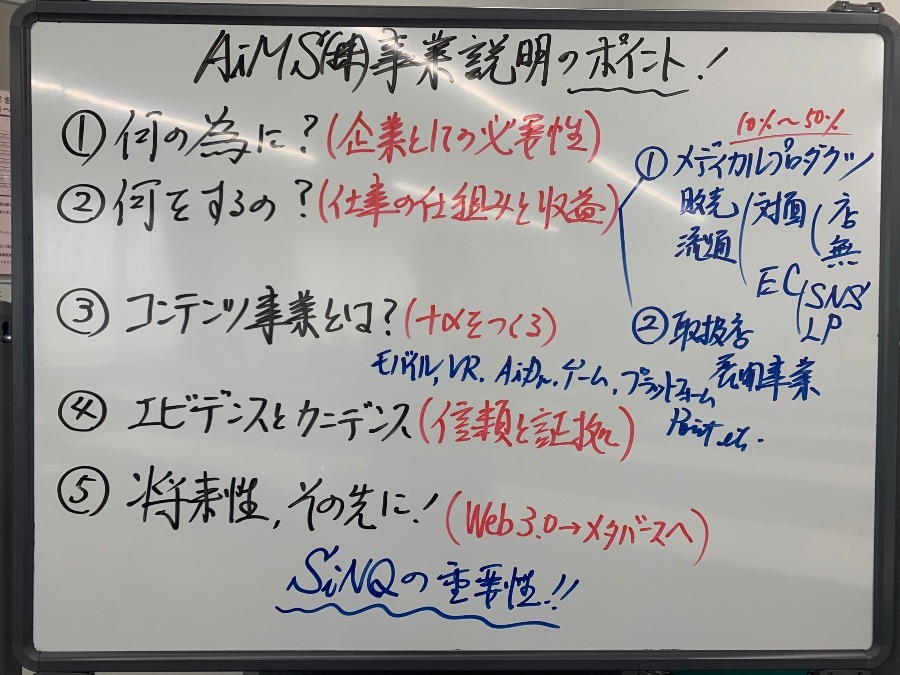 AiMS(株)事業説明のポイント!
① 何の為に?(企業としての必要性)
② 何をするの?(仕事の仕組みと収益)
10%~50%
① メディカルプロダクツ
販売 対面 店
流通 無
EC SNS
LP
② 取扱店
展開事業
③ コンテンツ事業とは?(+αをつくる)
モバイル, VR. AiDr, ゲーム, プラットフォーム
Point etc.
④ エビデンスとクレデンス(信頼と証拠)
⑤ 将来性, その先に!(Web3.0→メタバースへ)
SiNQの重要性!!